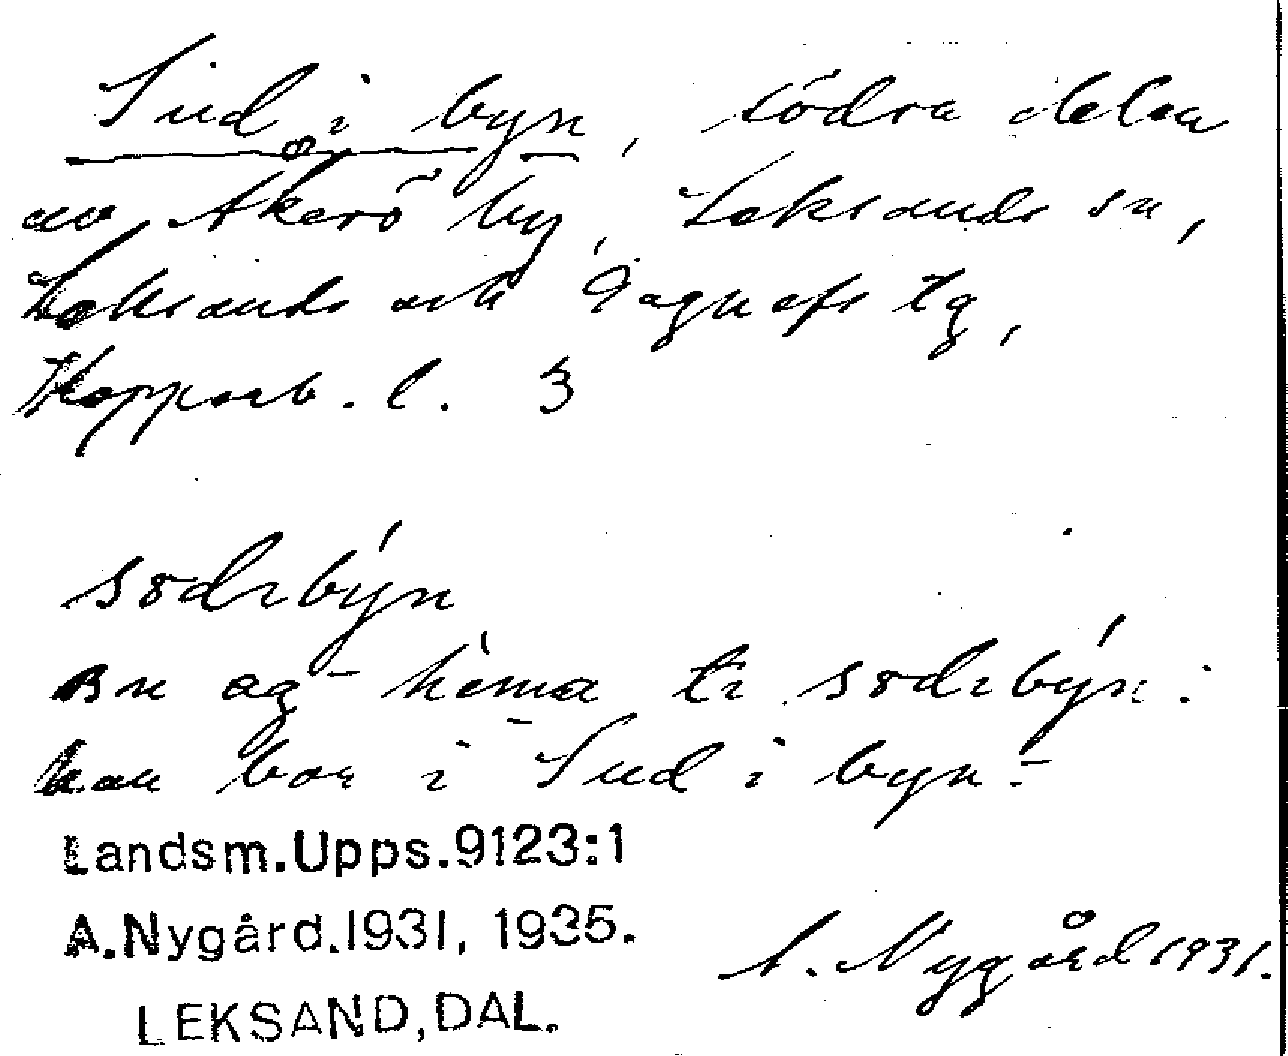 Sud i byn, södra delen
av Åkerö by, Leksands sn,
Leksands och Gagnefs tg,
Kopparb. l. 3
södrbýn
an ag hema ti södrbýn:
han bor i Sud i byn.-
Landsm.Upps.9123:1
A.Nygård.1931, 1935.
A. Nygård 1931.
LEKSAND, DAL.